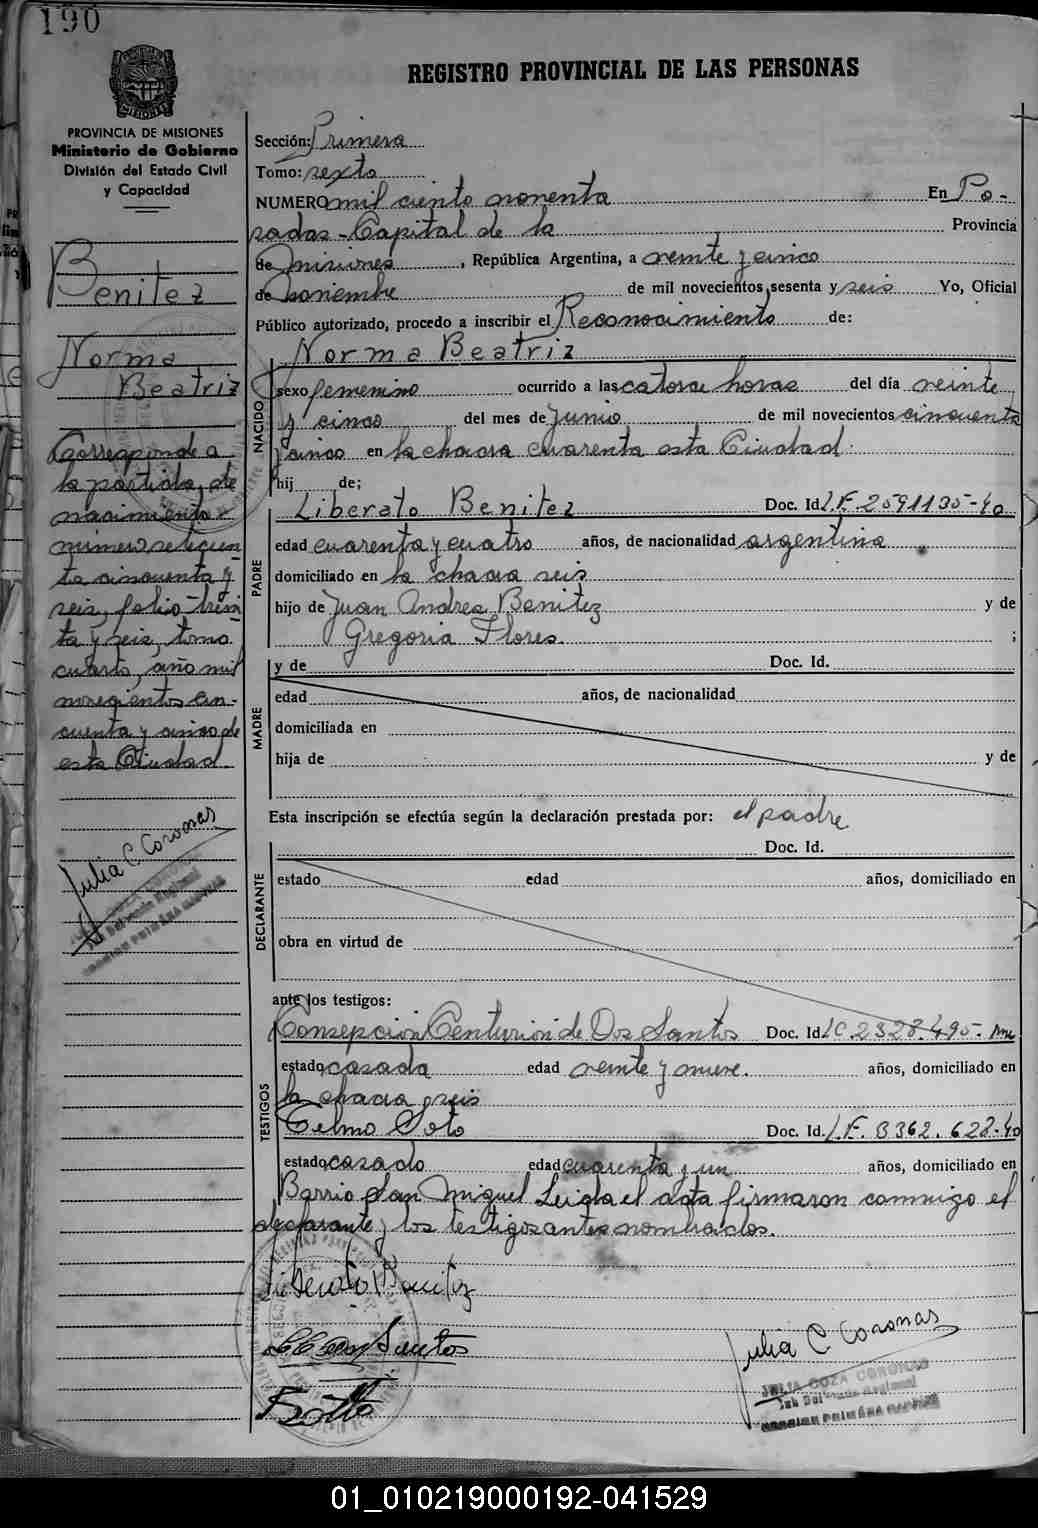 190
REGISTRO PROVINCIAL DE LAS PERSONAS
PROVINCIA DE MISIONES
Ministerio de Gobierno
División del Estado Civil
y Capacidad
Benitez
Norma
Beatriz
Corresponde a
la partida de
nacimiento
número setecien
ta cincuenta y
seis, folio trein
ta y seis, tomo
cuarto, año mil
novecientos cin-
cuenta y cinco de
esta Ciudad.
Julia C. Coronas
Sección: Primera
Tomo: sexto
NUMERO mil ciento noventa En Po-
sadas - Capital de la Provincia
de Misiones, República Argentina, a veinte y cinco
de Noviembre de mil novecientos sesenta y seis Yo, Oficial
Público autorizado, procedo a inscribir el Reconocimiento de:
Norma Beatriz
NACIDO
sexo femenino ocurrido a las catorce horas del día veinte
y cinco del mes de Junio de mil novecientos cincuenta
y cinco en la chacra cuarenta esta Ciudad.
hij de;
PADRE
Liberato Benitez Doc. Id. L.E. 2591135-40
edad cuarenta y cuatro años, de nacionalidad argentina
domiciliado en la chacra seis
hijo de Juan Andres Benitez y de
Gregoria Flores. ;
MADRE
y de Doc. Id.
edad años, de nacionalidad
domiciliada en
hija de y de
Esta inscripción se efectúa según la declaración prestada por: el padre
DECLARANTE
Doc. Id.
estado edad años, domiciliado en
obra en virtud de
ante los testigos:
TESTIGOS
Consepción Centurión de Dos Santos Doc. Id. L.C. 2.328.495-
estado casada edad veinte y nueve. años, domiciliado en
la chacra seis
Telmo Soto Doc. Id. L.E. 3362.628-40
estado casado edad cuarenta y un años, domiciliado en
Barrio San Miguel Leida el acta firmaron conmigo el
declarante y los testigos antes nombrados.
Liberato Benitez
Santos
Julia C. Coronas
JULIA COZA CORONAS
01_010219000192-041529